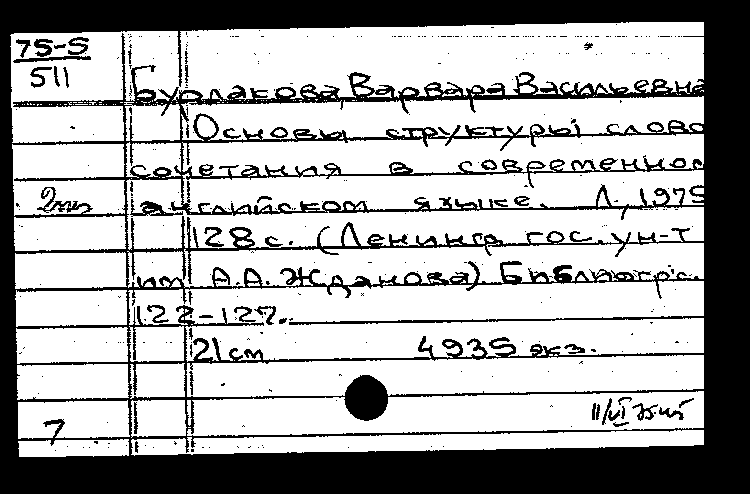 75-5
511
Бурлакова, Варвара Васильевна
Основы структуры слово
сочетания в современном
2 английском языке. Л., 1975
128 с. (Ленингр. гос. ун-т
им. А.А. Жданова). Библиогр: с.
122-127.
21 см 4935 экз.
7